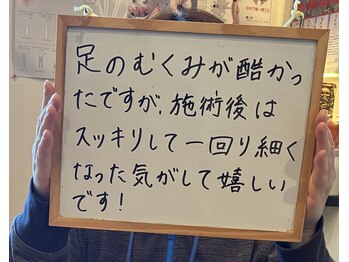 足のむくみが酷かっ
たですが、施術後は
スッキリして一回り細く
なった気がして嬉しい
です!